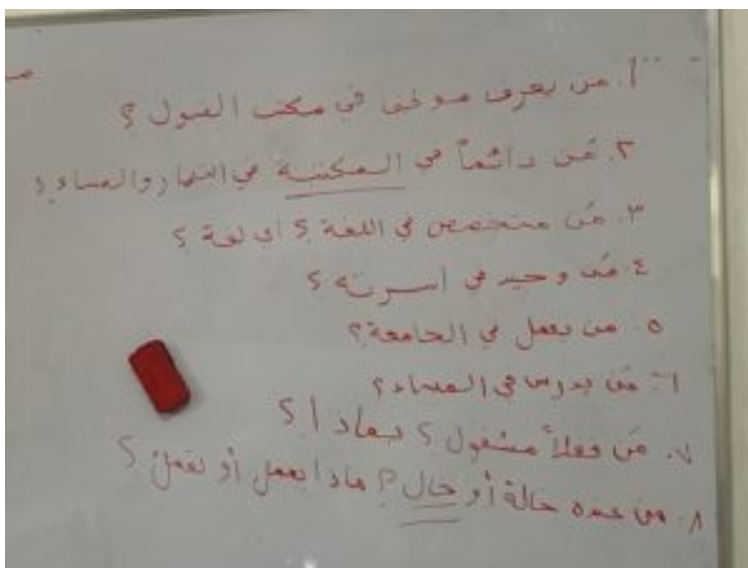 ١. من يعرف موظف في مكتب القبول ؟
٢. مَن دائماً في المكتبة في النهار والمساء ؟
٣. مَن متخصص في اللغة ؟ أي لغة ؟
٤. مَن وحيد في أسرته ؟
٥. من يعمل في الجامعة ؟
٦. مَن يدرس في المساء ؟
٧. مَن فعلاً مشغول ؟ بماذا ؟
٨. من عنده خالة أو خال ؟ ماذا يعمل أو تعمل ؟